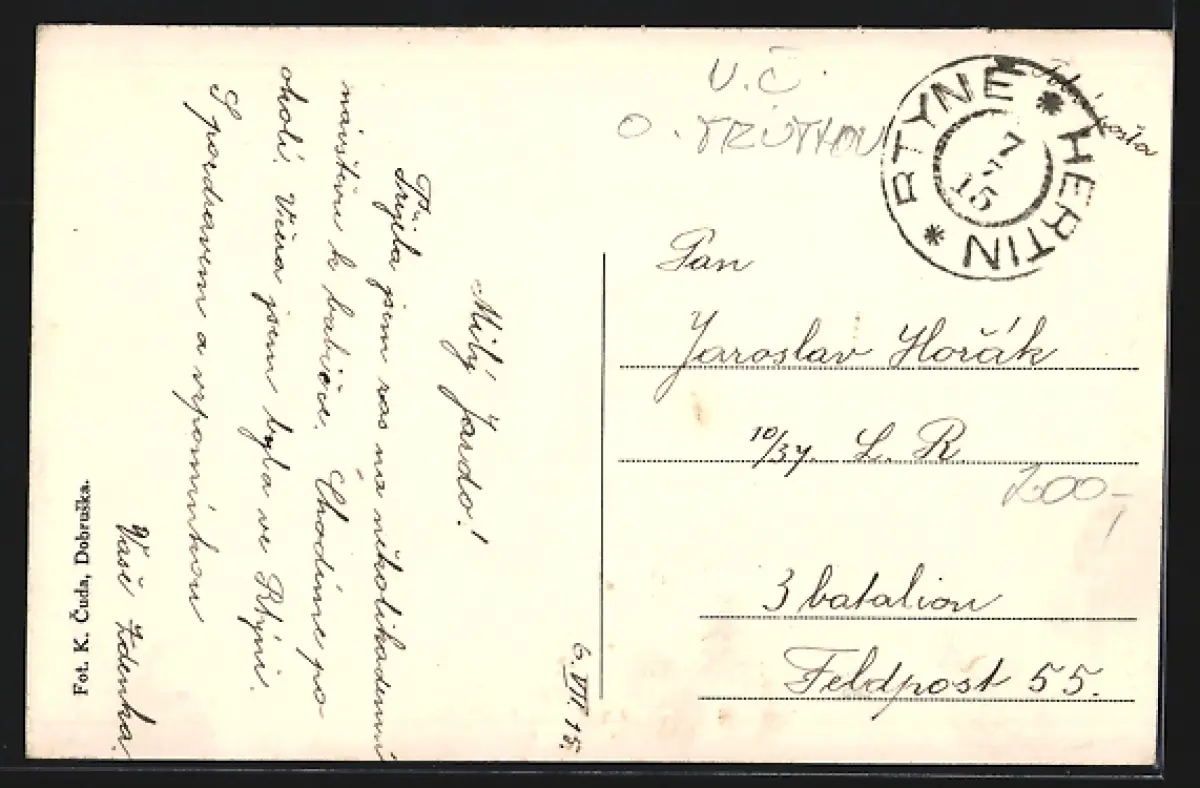 U. Č.
O. TRUTNOV
RTYNĚ * HERTIN *
7
7
15
Pan
Jaroslav Horčák
10/37. L. R.
200-,
3 batalion
Feldpost 55.
6. VII. 15.
Milý Jardo!
Přijela jsem zas na několikadenní
návštěvu k babičce. Chodíme po
okolí. Včera jsem byla ve Rtýni.
S pozdravem a vzpomínkou
Vaše Zdenka.
Fot. K. Čuda, Dobruška.